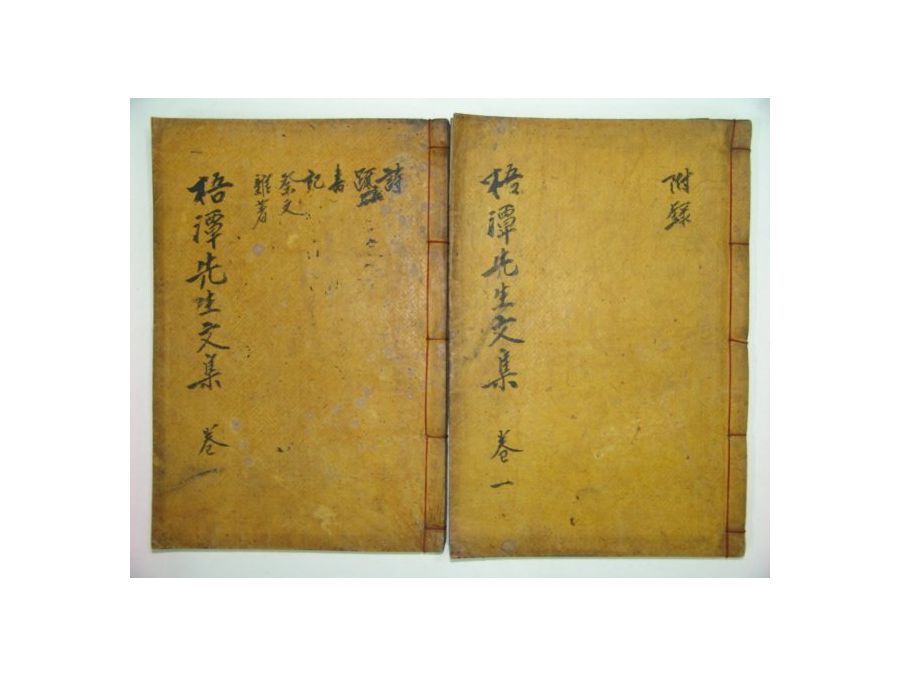 詩
書
記
祭文
雜著
梧潭先生文集 卷一
附錄
梧潭先生文集 卷一